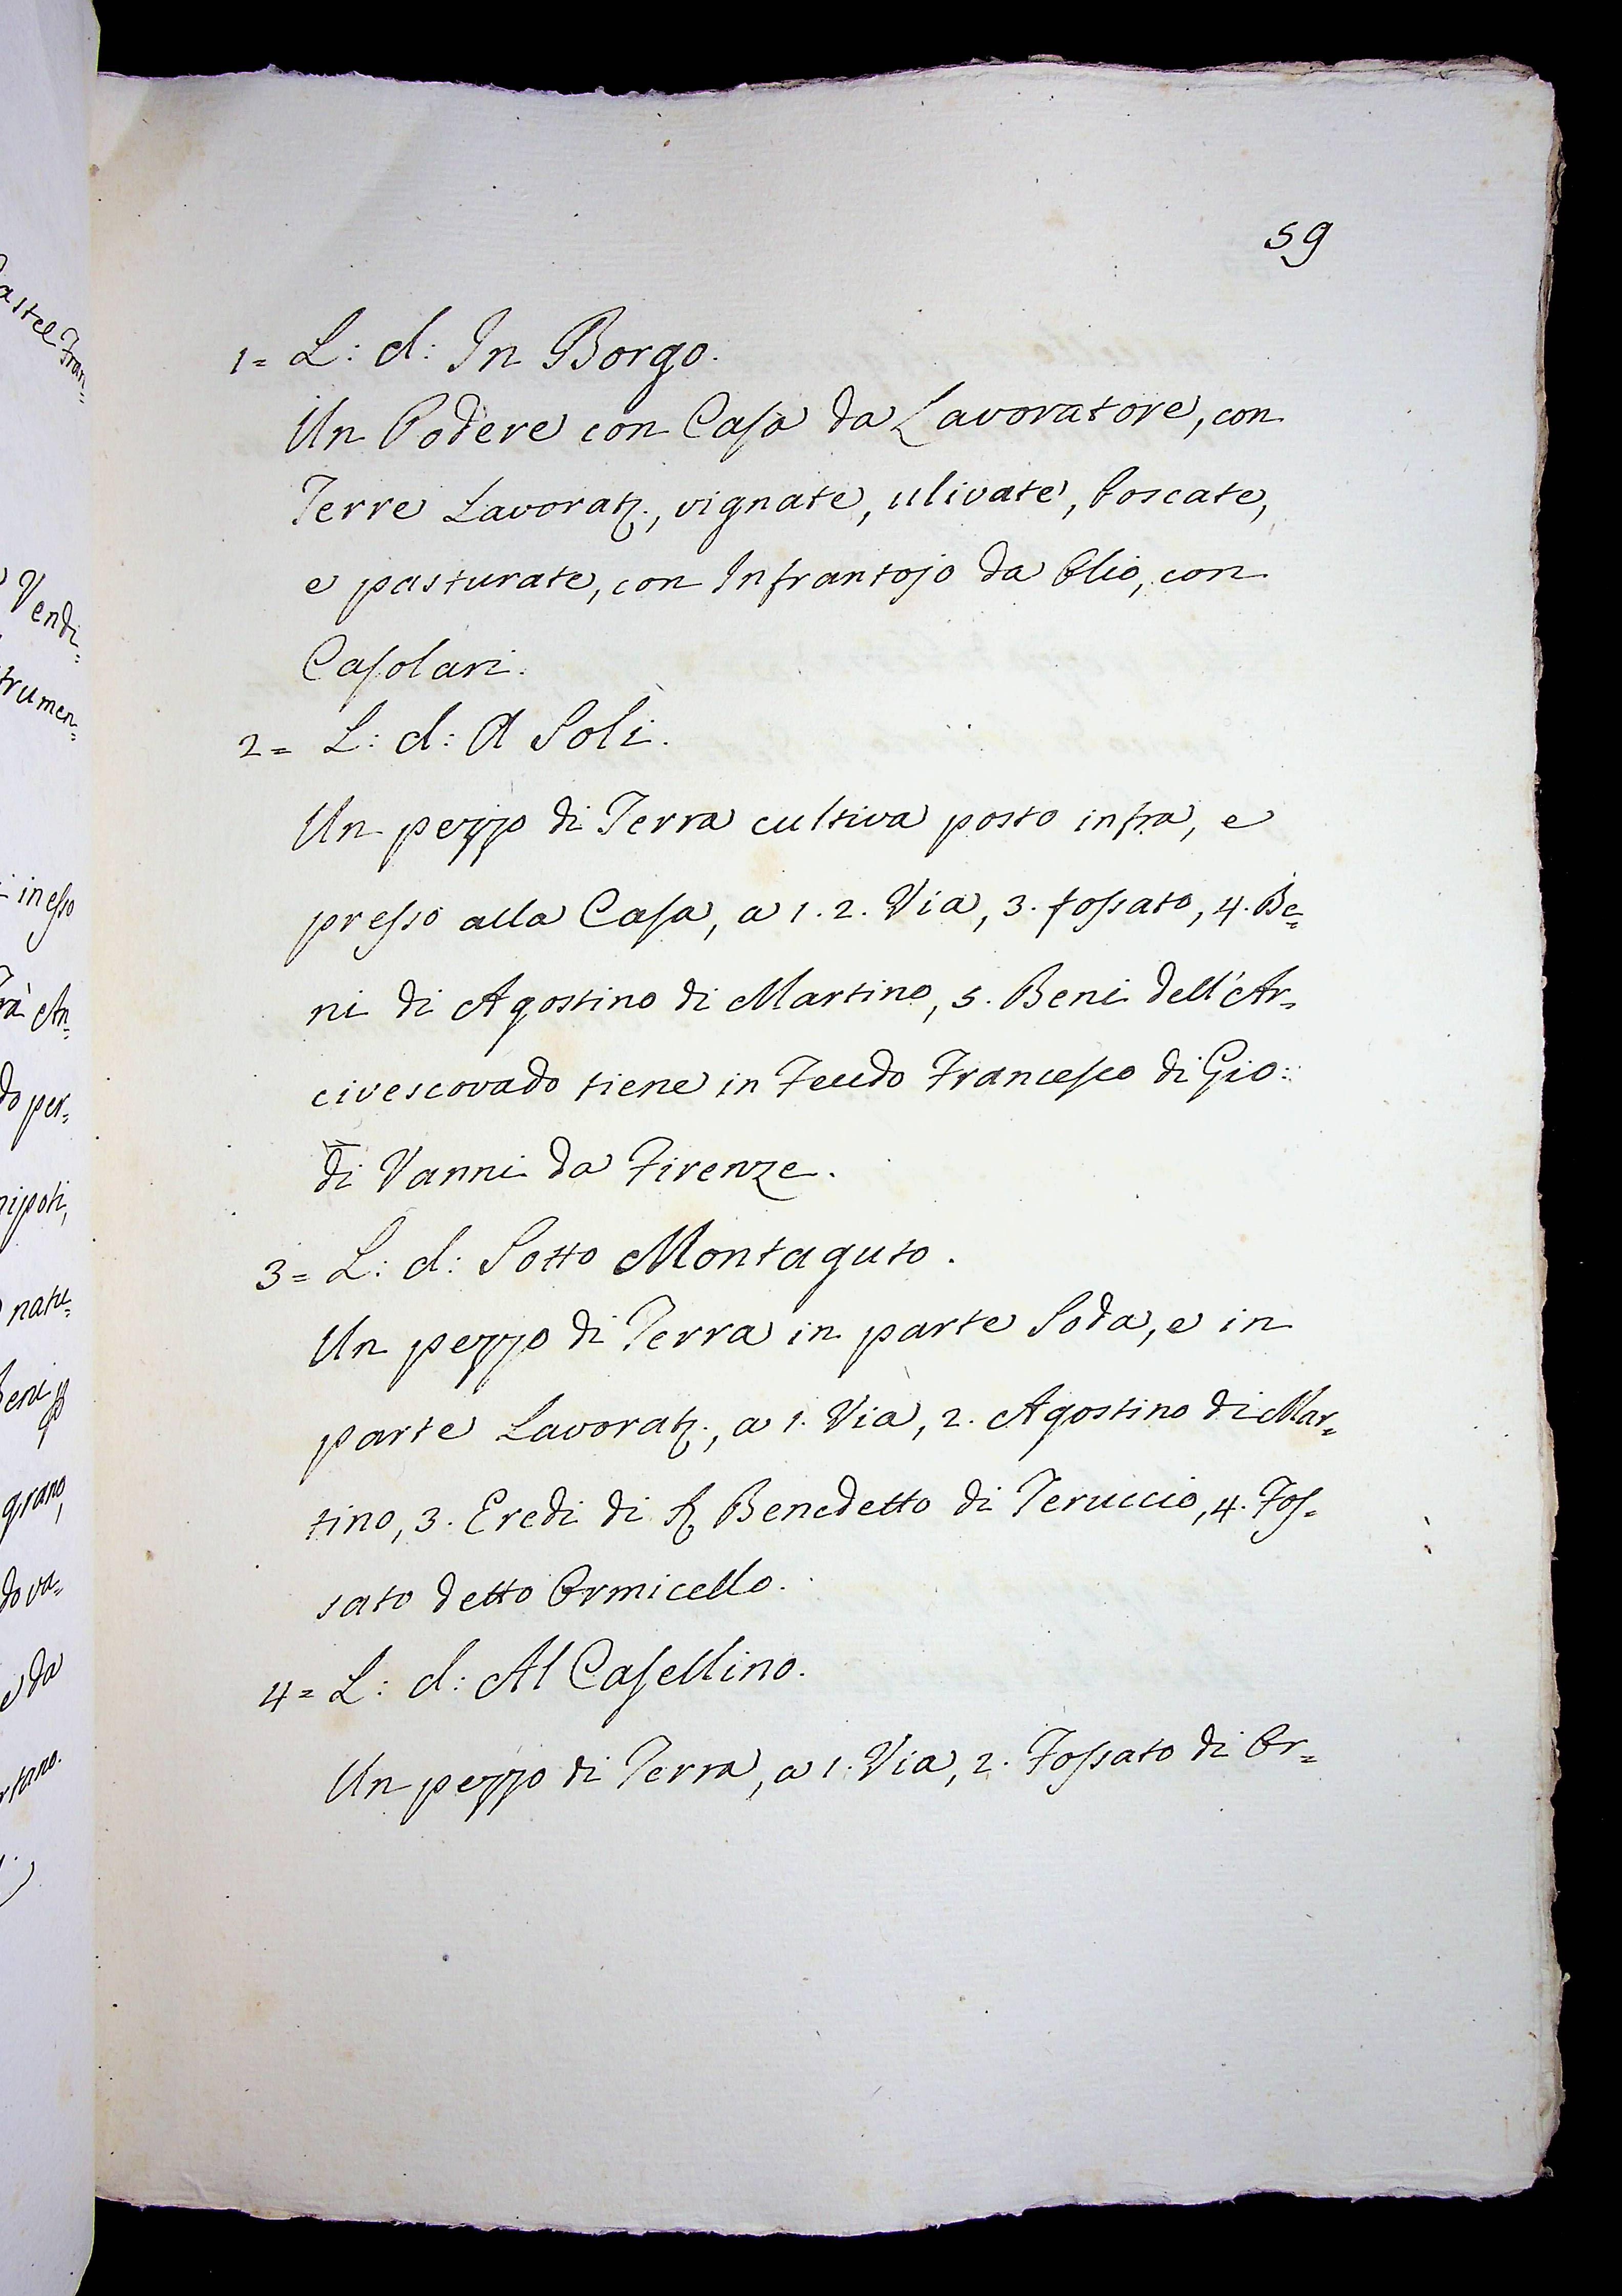 59
1= L: d: In Borgo.
Un Podere con Casa da Lavoratore, con
Terre Lavorat., vignate, ulivate, boscate,
e pasturate, con Infrantojo da Olio, con
Casolari.
2= L: d: A Soli.
Un pezzo di Terra cultiva posto infra, e
presso alla Casa, a 1. 2. Via, 3. fossato, 4. Be=
ni di Agostino di Martino, 5. Beni dell'Ar=
civescovado tiene in Feudo Francesco di Gio:
di Vanni da Firenze.
3= L: d: Sotto Montaguto.
Un pezzo di Terra in parte Soda, e in
parte Lavorat., a 1. Via, 2. Agostino di Mar=
tino, 3. Eredi di Benedetto di Teruccio, 4. Fos=
sato detto Ormicello.
4= L: d: Al Casellino.
Un pezzo di Terra, a 1. Via, 2. Fossato di Or=
astel Fran=
Vendi=
trumen=
in esso
rà An=
do per=
nipoti,
natu=
Beni
grano,
do va=
e da
rtano.